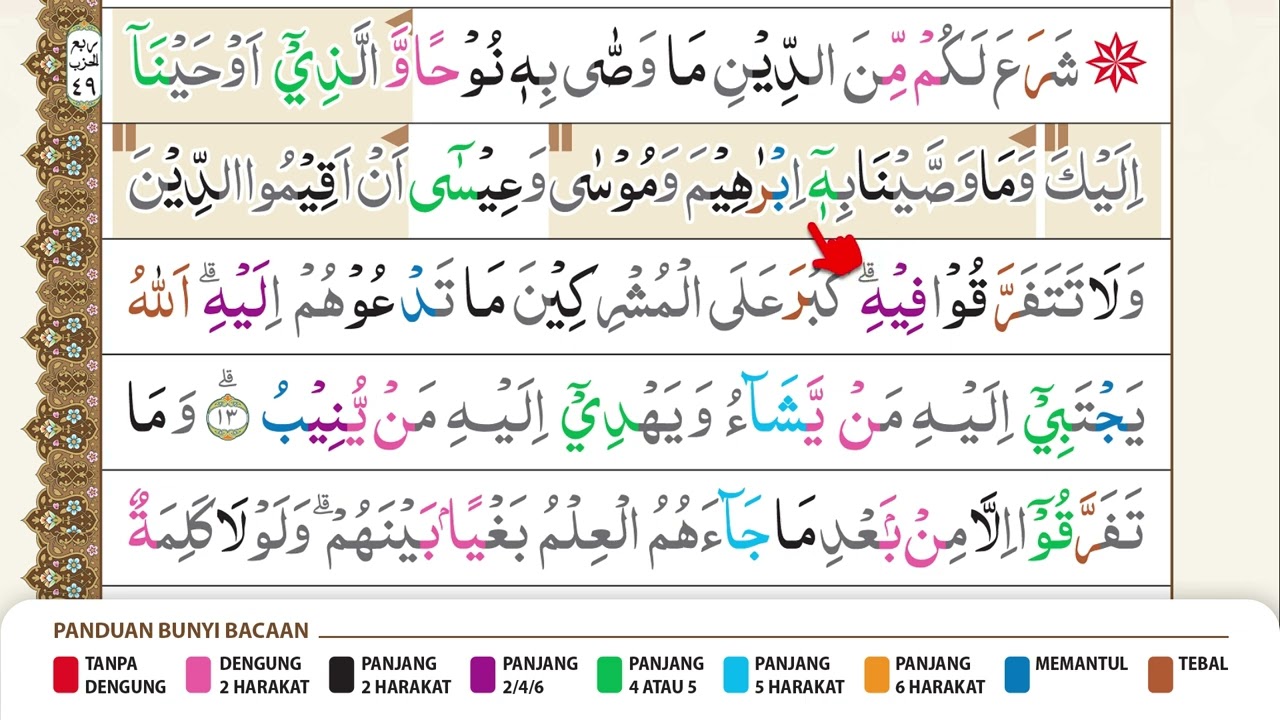 ربع
الحزب
٤٩
شَرَعَ لَكُمْ مِّنَ الدِّيْنِ مَا وَصّٰى بِهٖ نُوْحًا وَّالَّذِيْٓ اَوْحَيْنَآ
اِلَيْكَ وَمَا وَصَّيْنَا بِهٖٓ اِبْرٰهِيْمَ وَمُوْسٰى وَعِيْسٰٓى اَنْ اَقِيْمُوا الدِّيْنَ
وَلَا تَتَفَرَّقُوْا فِيْهِۗ كَبُرَ عَلَى الْمُشْرِكِيْنَ مَا تَدْعُوْهُمْ اِلَيْهِۗ اَللّٰهُ
يَجْتَبِيْٓ اِلَيْهِ مَنْ يَّشَاۤءُ وَيَهْدِيْٓ اِلَيْهِ مَنْ يُّنِيْبُۗ ١٣ وَمَا
تَفَرَّقُوْٓا اِلَّا مِنْۢ بَعْدِ مَا جَاۤءَهُمُ الْعِلْمُ بَغْيًاۢ بَيْنَهُمْۗ وَلَوْلَا كَلِمَةٌ
PANDUAN BUNYI BACAAN
TANPA DENGUNG
DENGUNG 2 HARAKAT
PANJANG 2 HARAKAT
PANJANG 2/4/6
PANJANG 4 ATAU 5
PANJANG 5 HARAKAT
PANJANG 6 HARAKAT
MEMANTUL
TEBAL